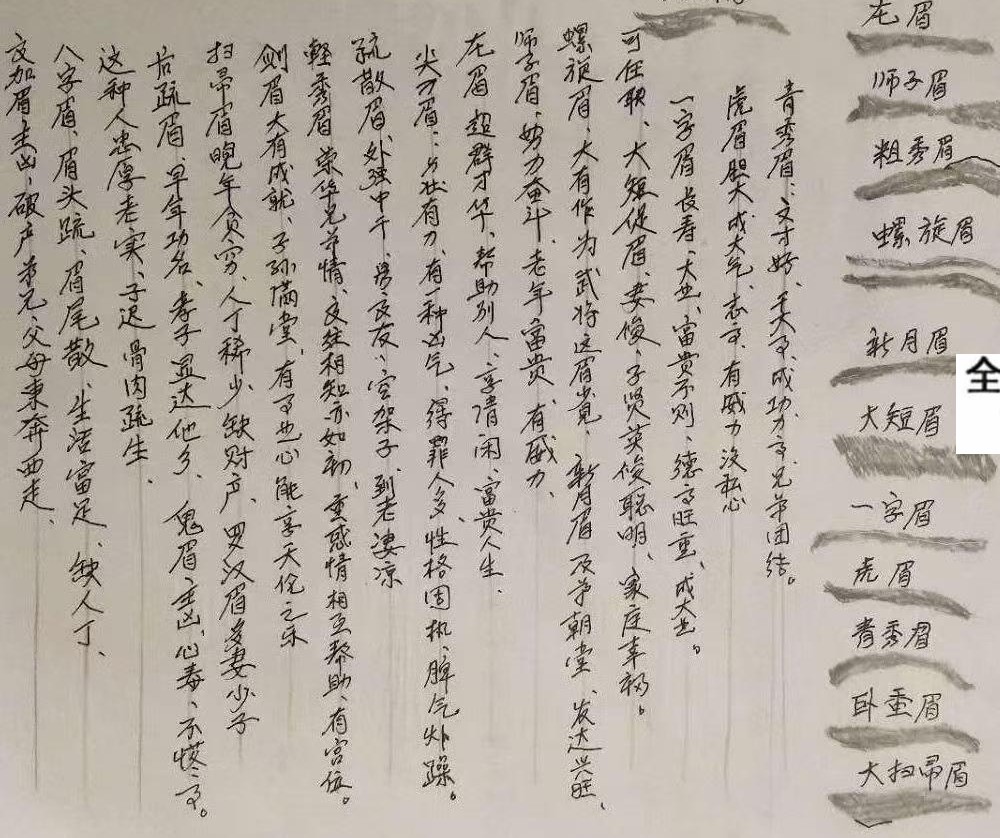 龙眉
师子眉
粗秀眉
螺旋眉
新月眉
大短眉
一字眉
虎眉
青秀眉
卧蚕眉
大扫帚眉
全
青秀眉：文才好、干大事、成功力高兄弟团结。
虎眉胆大成大气、志高、有威力没私心
一字眉长寿、大业、富贵不则、德高旺重、成大业。
可任职、大短促眉、妻俊、子贤英俊聪明、家庭幸福。
螺旋眉、大有作为武将这眉常见、新月眉及第朝堂、发达兴旺、
师子眉、努力奋斗、老年富贵、有威力、
龙眉超群才华、帮助别人、享清闲、富贵人生、
尖刀眉：力壮有力、有一种凶气、得罪人多、性格固执、脾气炸躁。
疏散眉、外强中干、易交友、空架子、到老凄凉
轻秀眉荣华兄弟情、交往相知亦如初、重感情相互帮助、有官位。
剑眉大有成就、子孙满堂、有事业心能享天伦之乐
扫帚眉晚年贫穷、人丁稀少、缺财产、罗汉眉多妻少子
后疏眉、早年功名、孝子显达他乡、鬼眉主凶、心毒、不怪事。
这种人忠厚老实、子迟骨肉疏生、
八字眉、眉头疏、眉尾散、生活富足、缺人丁、
交加眉主凶、破产弟兄、父母东奔西走、